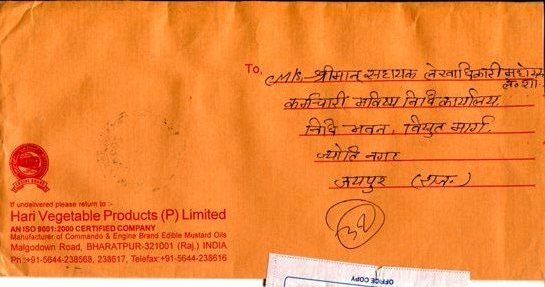 To,
M/s. श्रीमान् सहायक लेखाधिकारी महोदय
कर्मचारी भविष्य निधि कार्यालय,
निधि भवन, विद्युत मार्ग,
ज्योति नगर
जयपुर (राज.)
If undelivered please return to :-
Hari Vegetable Products (P) Limited
AN ISO 9001:2000 CERTIFIED COMPANY
Manufacturer of Commando & Engine Brand Edible Mustard Oils
Malgodown Road, BHARATPUR-321001 (Raj.) INDIA
Ph:+91-5644-238568, 238617, Telefax:+91-5644-238616
OFFICE COPY